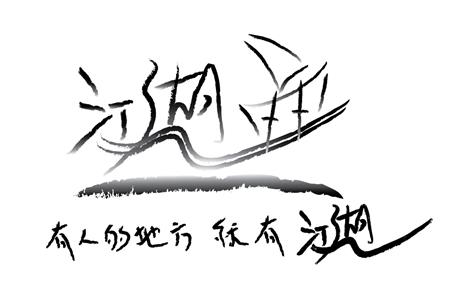 江湖
有人的地方 就有江湖